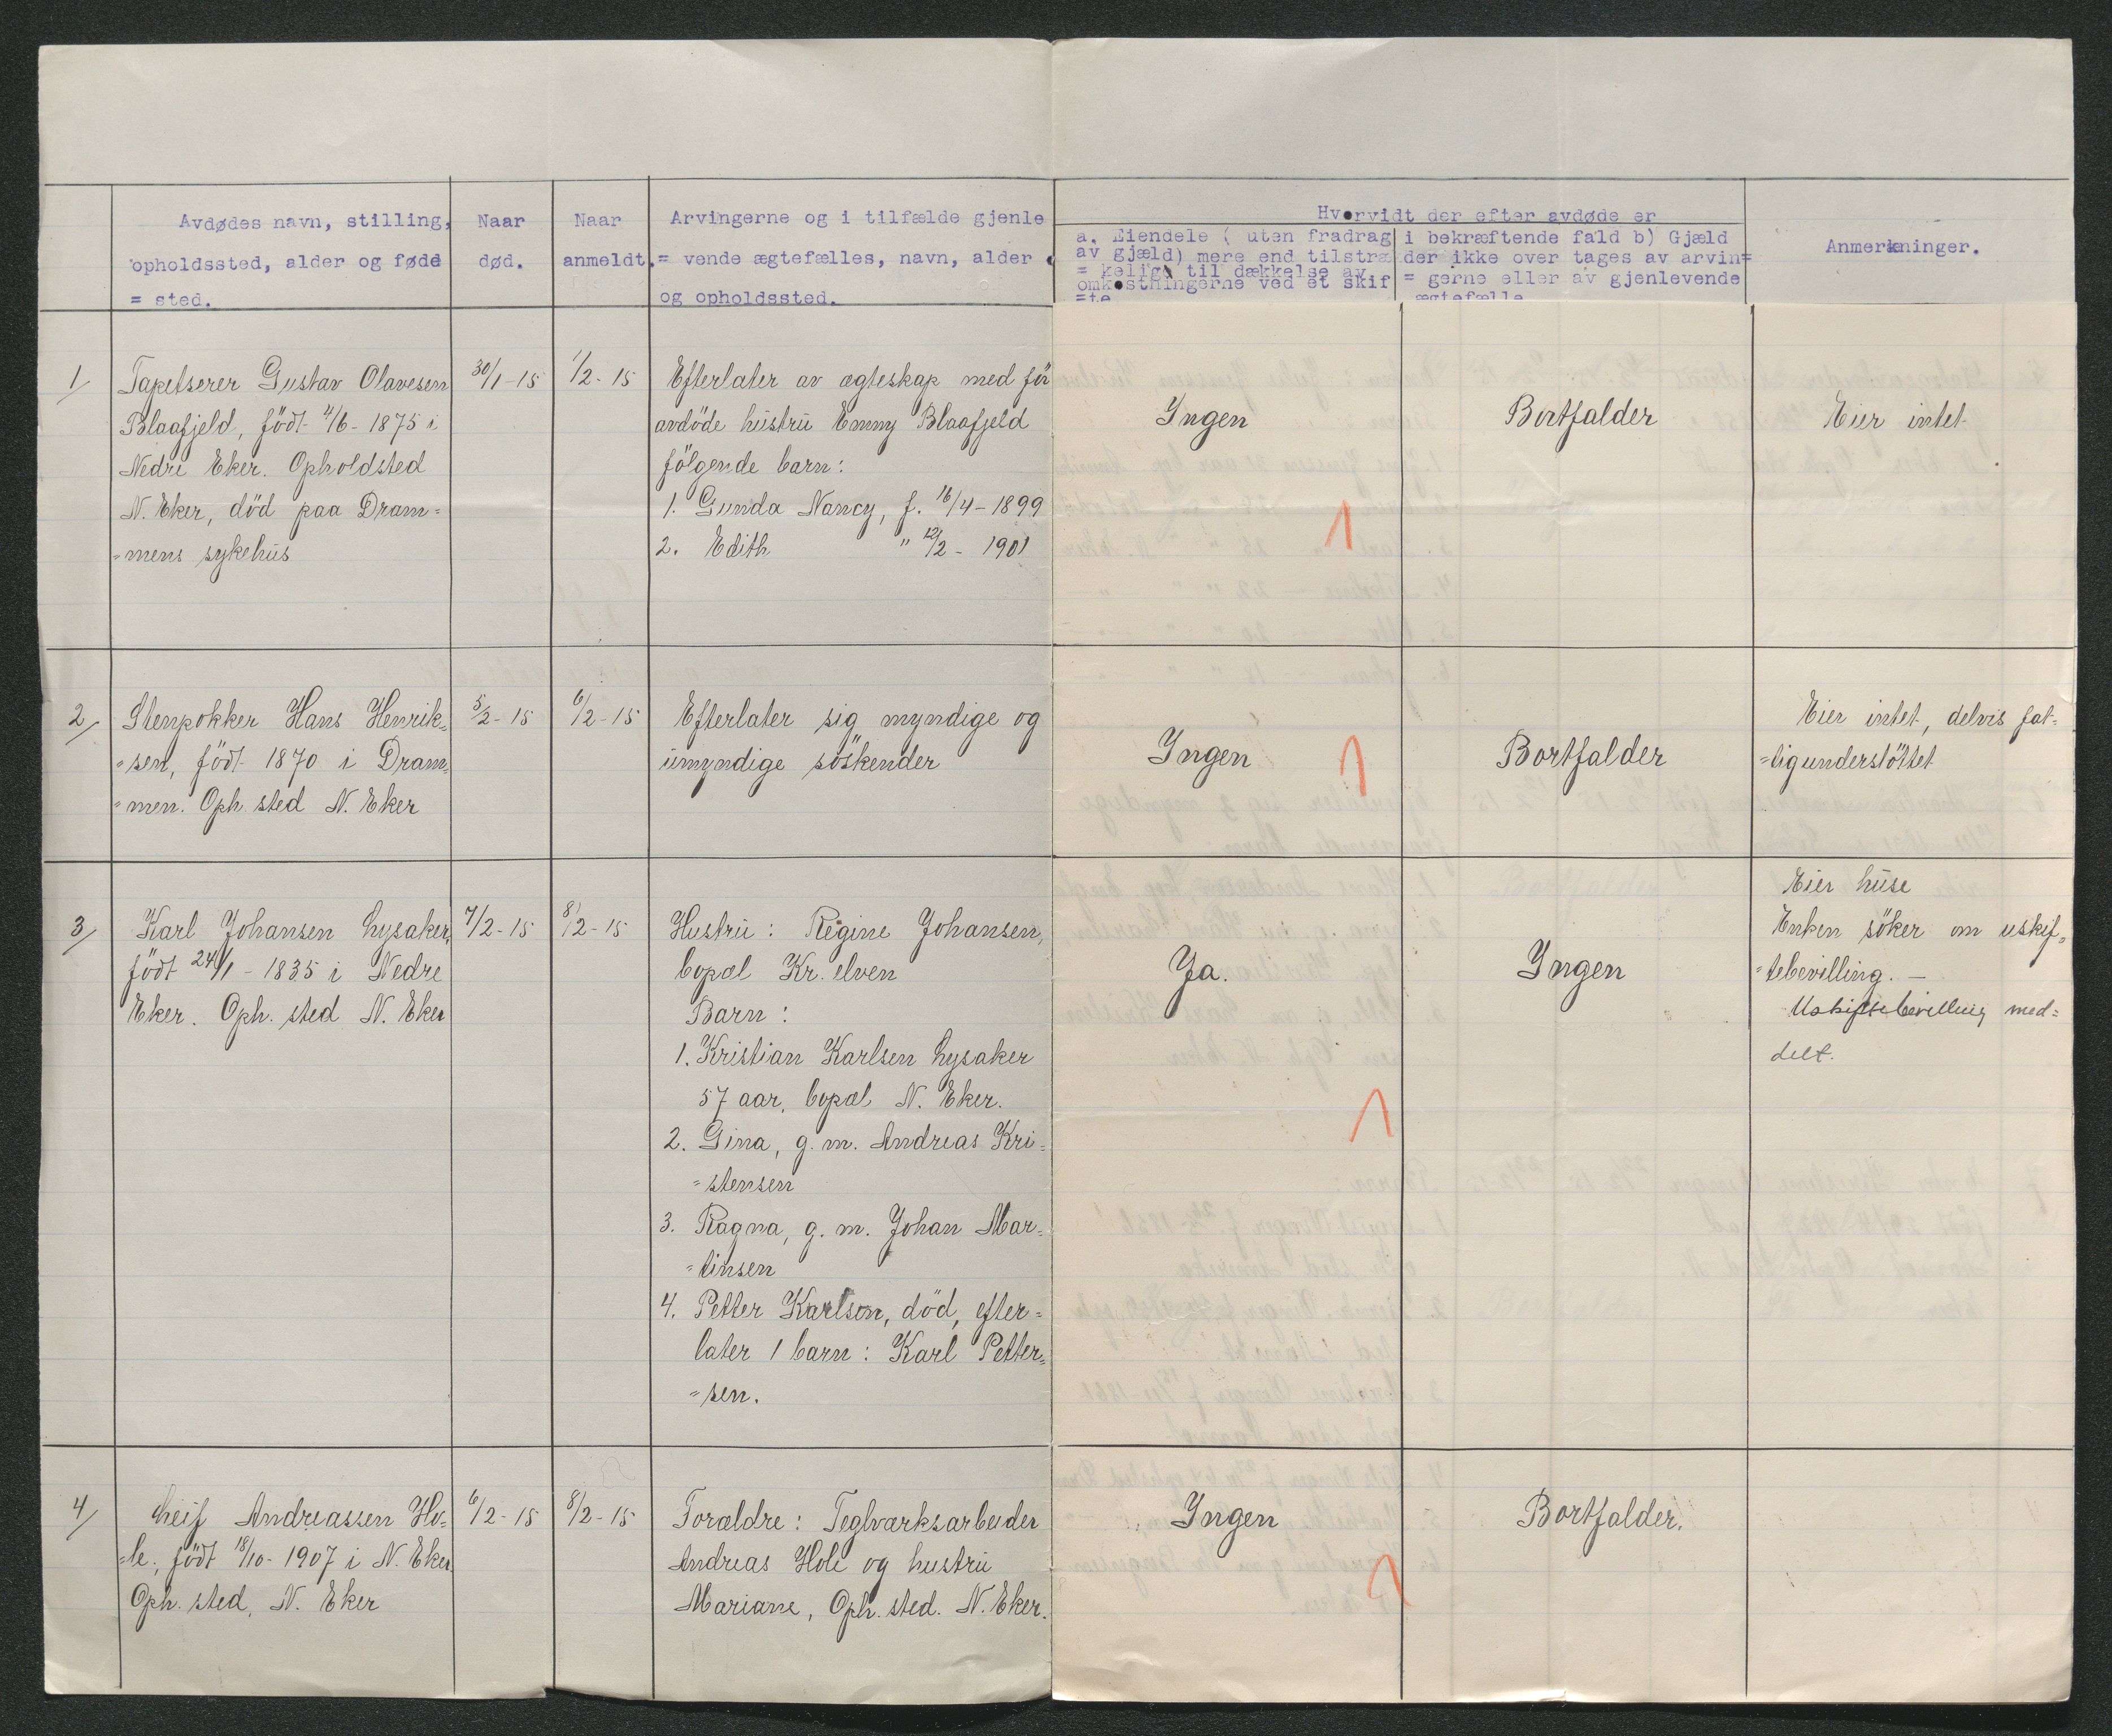 Avdødes navn, stilling,
opholdssted, alder og føde
= sted.
Naar
død.
Naar
anmeldt.
Arvingerne og i tilfælde gjenle
= vende ægtefælles, navn, alder
og opholdssted.
Hvorvidt der efter avdøde er
a. Eiendele ( uten fradrag
av gjæld) mere end tilstræ
= kelige til dækkelse av
omkostningerne ved et skif
=te
i bekræftende fald b) Gjæld
der ikke over tages av arvin=
= gerne eller av gjenlevende
ægtefælle
Anmerkninger.
1/
Tapetserer Gustav Olavesen
Blaafjeld, födt 4/6 - 1875 i
Nedre Eker. Opholdsted
N. Eker, död paa Dram=
=mens sykehus
30/1-15
1/2-15
Efterlater av ægteskap med för
avdöde hustru Emmy Blaafjeld
fölgende barn:
1. Gunda Nancy, f. 16/4-1899
2. Edith " 12/2 - 1901
Ingen
Bortfalder
Eier intet
2/
Stenpokker Hans Henrik=
=sen, födt 1870 i Dram=
=men. Oph. sted N. Eker
5/2-15
6/2-15
Efterlater sig myndige og
umyndige söskender
Ingen
Bortfalder
Eier intet, delvis fat=
=tigunderstöttet
3/
Karl Johansen Lysaker,
födt 24/1 - 1835 i Nedre
Eker. Oph. sted N. Eker
7/2-15
8/2-15
Hustru: Regine Johansen,
bopæl Kr. elven
Barn:
1. Kristian Karlsen Lysaker
57 aar, bopæl N. Eker.
2. Gina, g. m. Andreas Kri=
=stensen
3. Ragna, g. m. Johan Mar=
=tinsen
4. Petter Karlson, död, efter=
later 1 barn: Karl Petter=
=sen.
Ja.
Ingen
Eier huse
Enken söker om uskif=
=tebevilling. —
Uskiftebevilling med=
delt.
4/
Leif Andreassen Ho=
=le, födt 18/10-1907 i N. Eker.
Oph. sted, N. Eker
6/2-15
8/2-15
Forældre: Teglværksarbeider
Andreas Hole og hustru
Mariane, Oph. sted. N. Eker.
Ingen
Bortfalder.